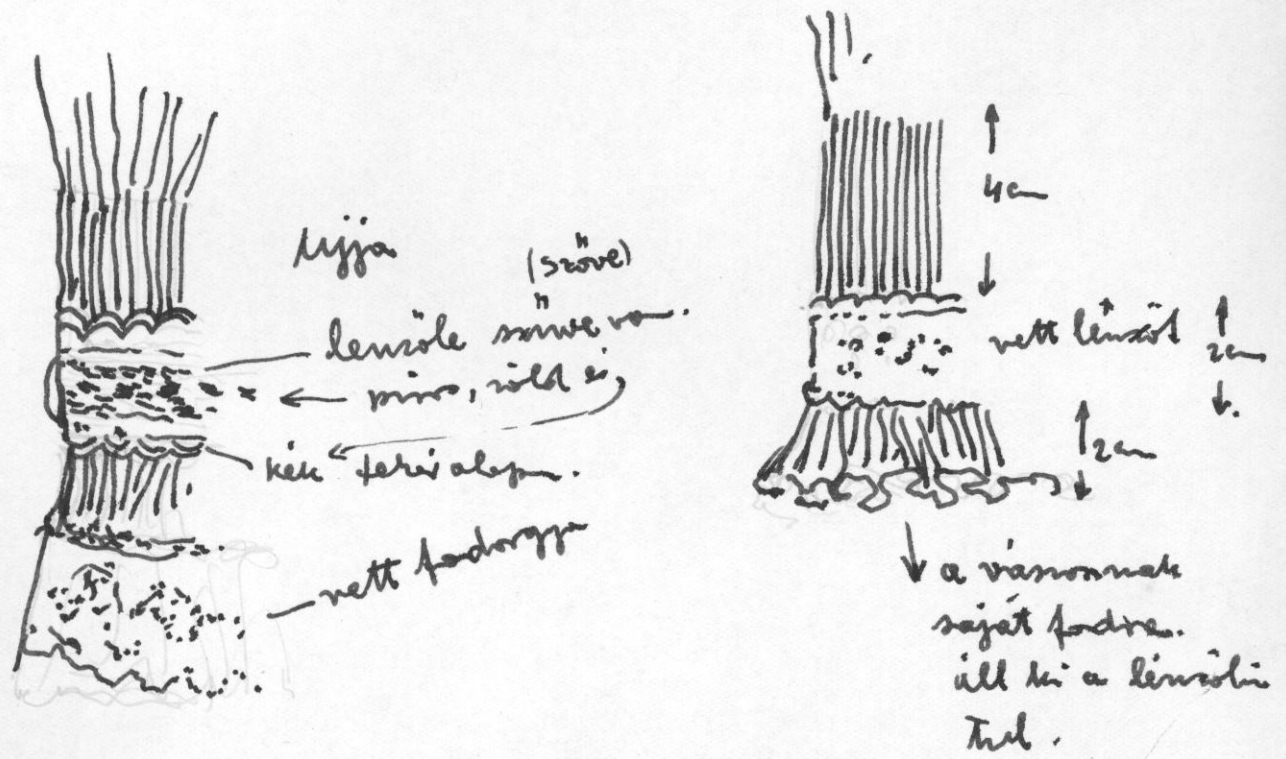 Ujja
(szöve)
lenzöle szöve van.
piros, zöld és
kék fehér alapon.
vett fodorgya
4 cm
vett lénzöl
2 cm
2 cm
a vászonnak
saját fodra.
áll ki a lénzölin
tul.